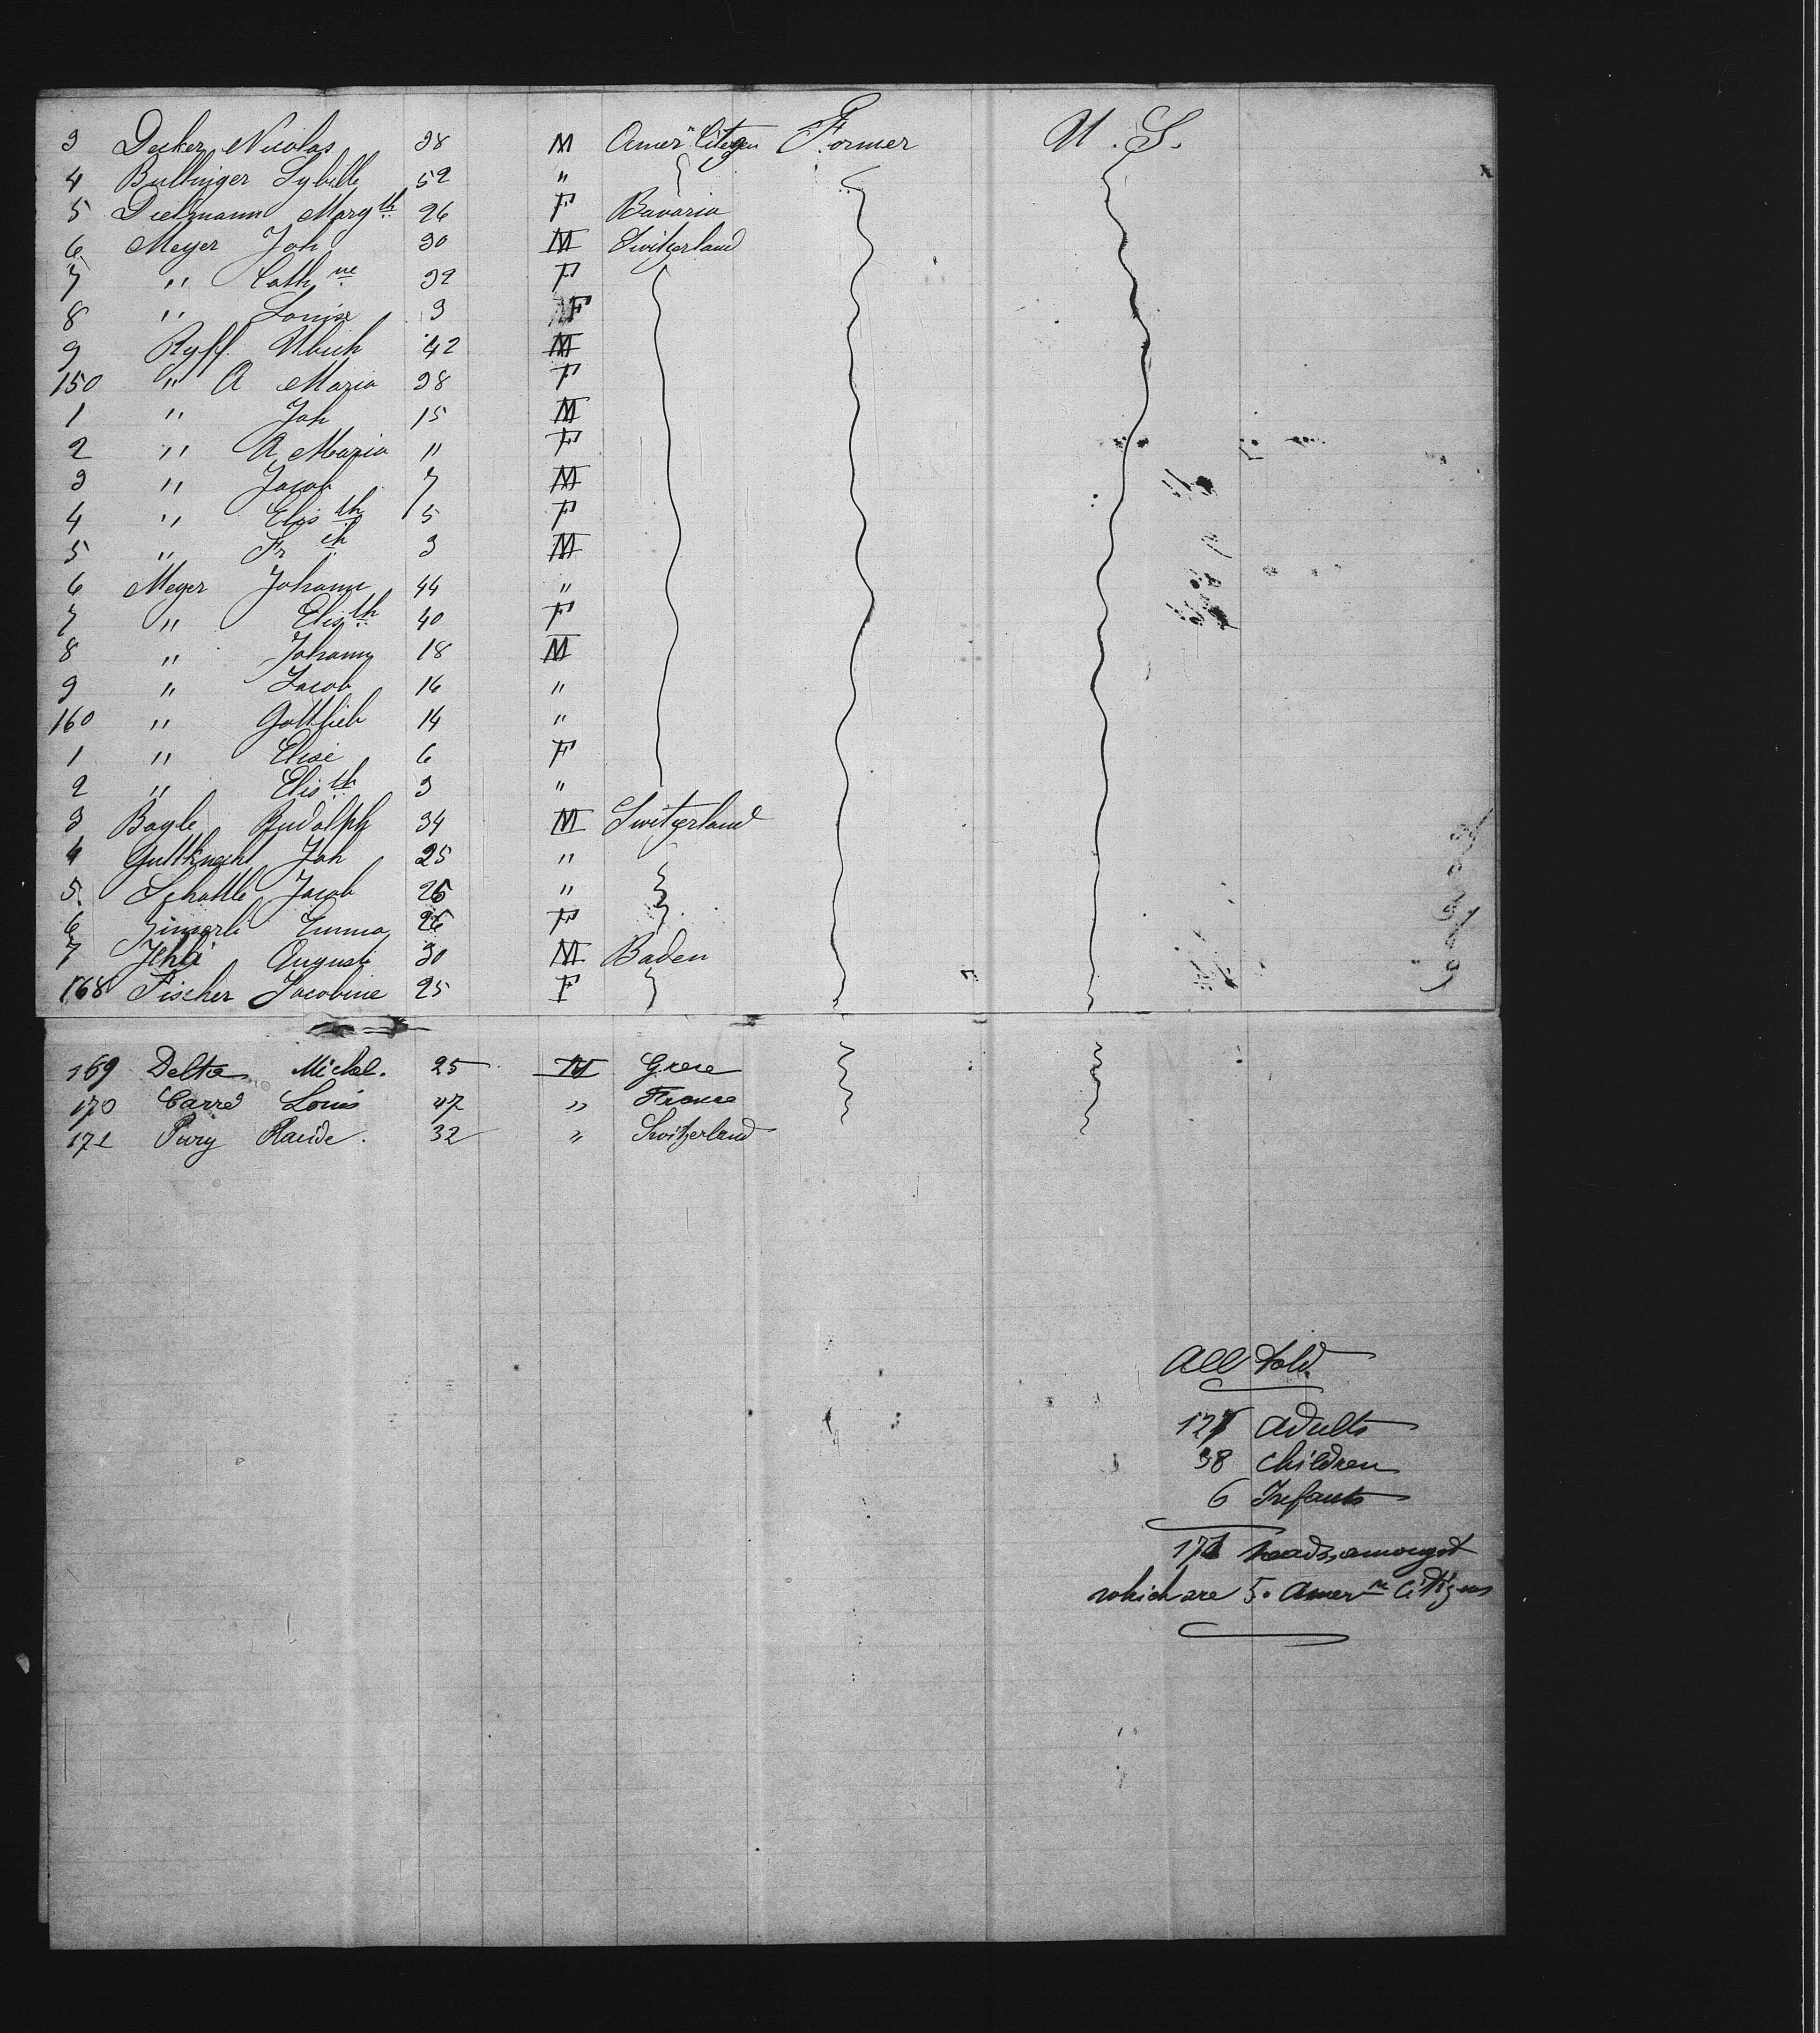 3 Decker Nicolas 38 M Amer" Citizen Farmer U. S.
4 Bullinger Sybille 52 "
5 Dietzmann Marg th 26 F Bavaria
6 Meyer Joh 30 M Switzerland
7 " Cath ne 32 F
8 " Louise 3 F
9 Ryff Ulrich 42 M
150 " A Maria 38 F
1 " Joh 15 M
2 " A Maria 11 F
3 " Jacob 7 M
4 " Elis th 5 F
5 " Fr ch 3 M
6 Meyer Johann 44 "
7 " Elis th 40 F
8 " Johann 18 M
9 " Jacob 16 "
160 " Gottlieb 14 "
1 " Elise 6 F
2 " Elis th 3 "
3 Bogle Rudolph 34 M Switzerland
4 Guttknecht Joh 25 "
5. Schattle Jacob 26 "
6 Emma 26 F
7 August 30 M Baden
168 Fischer Jacobine 25 F
169 Delta Michel. 25 M Grece
170 Carré Louis 47 " France
171 Pury 32 " Switzerland
All told
127 adults
38 children
6 Infants
171 heads, amongst
which are 5. Amer n Citizens